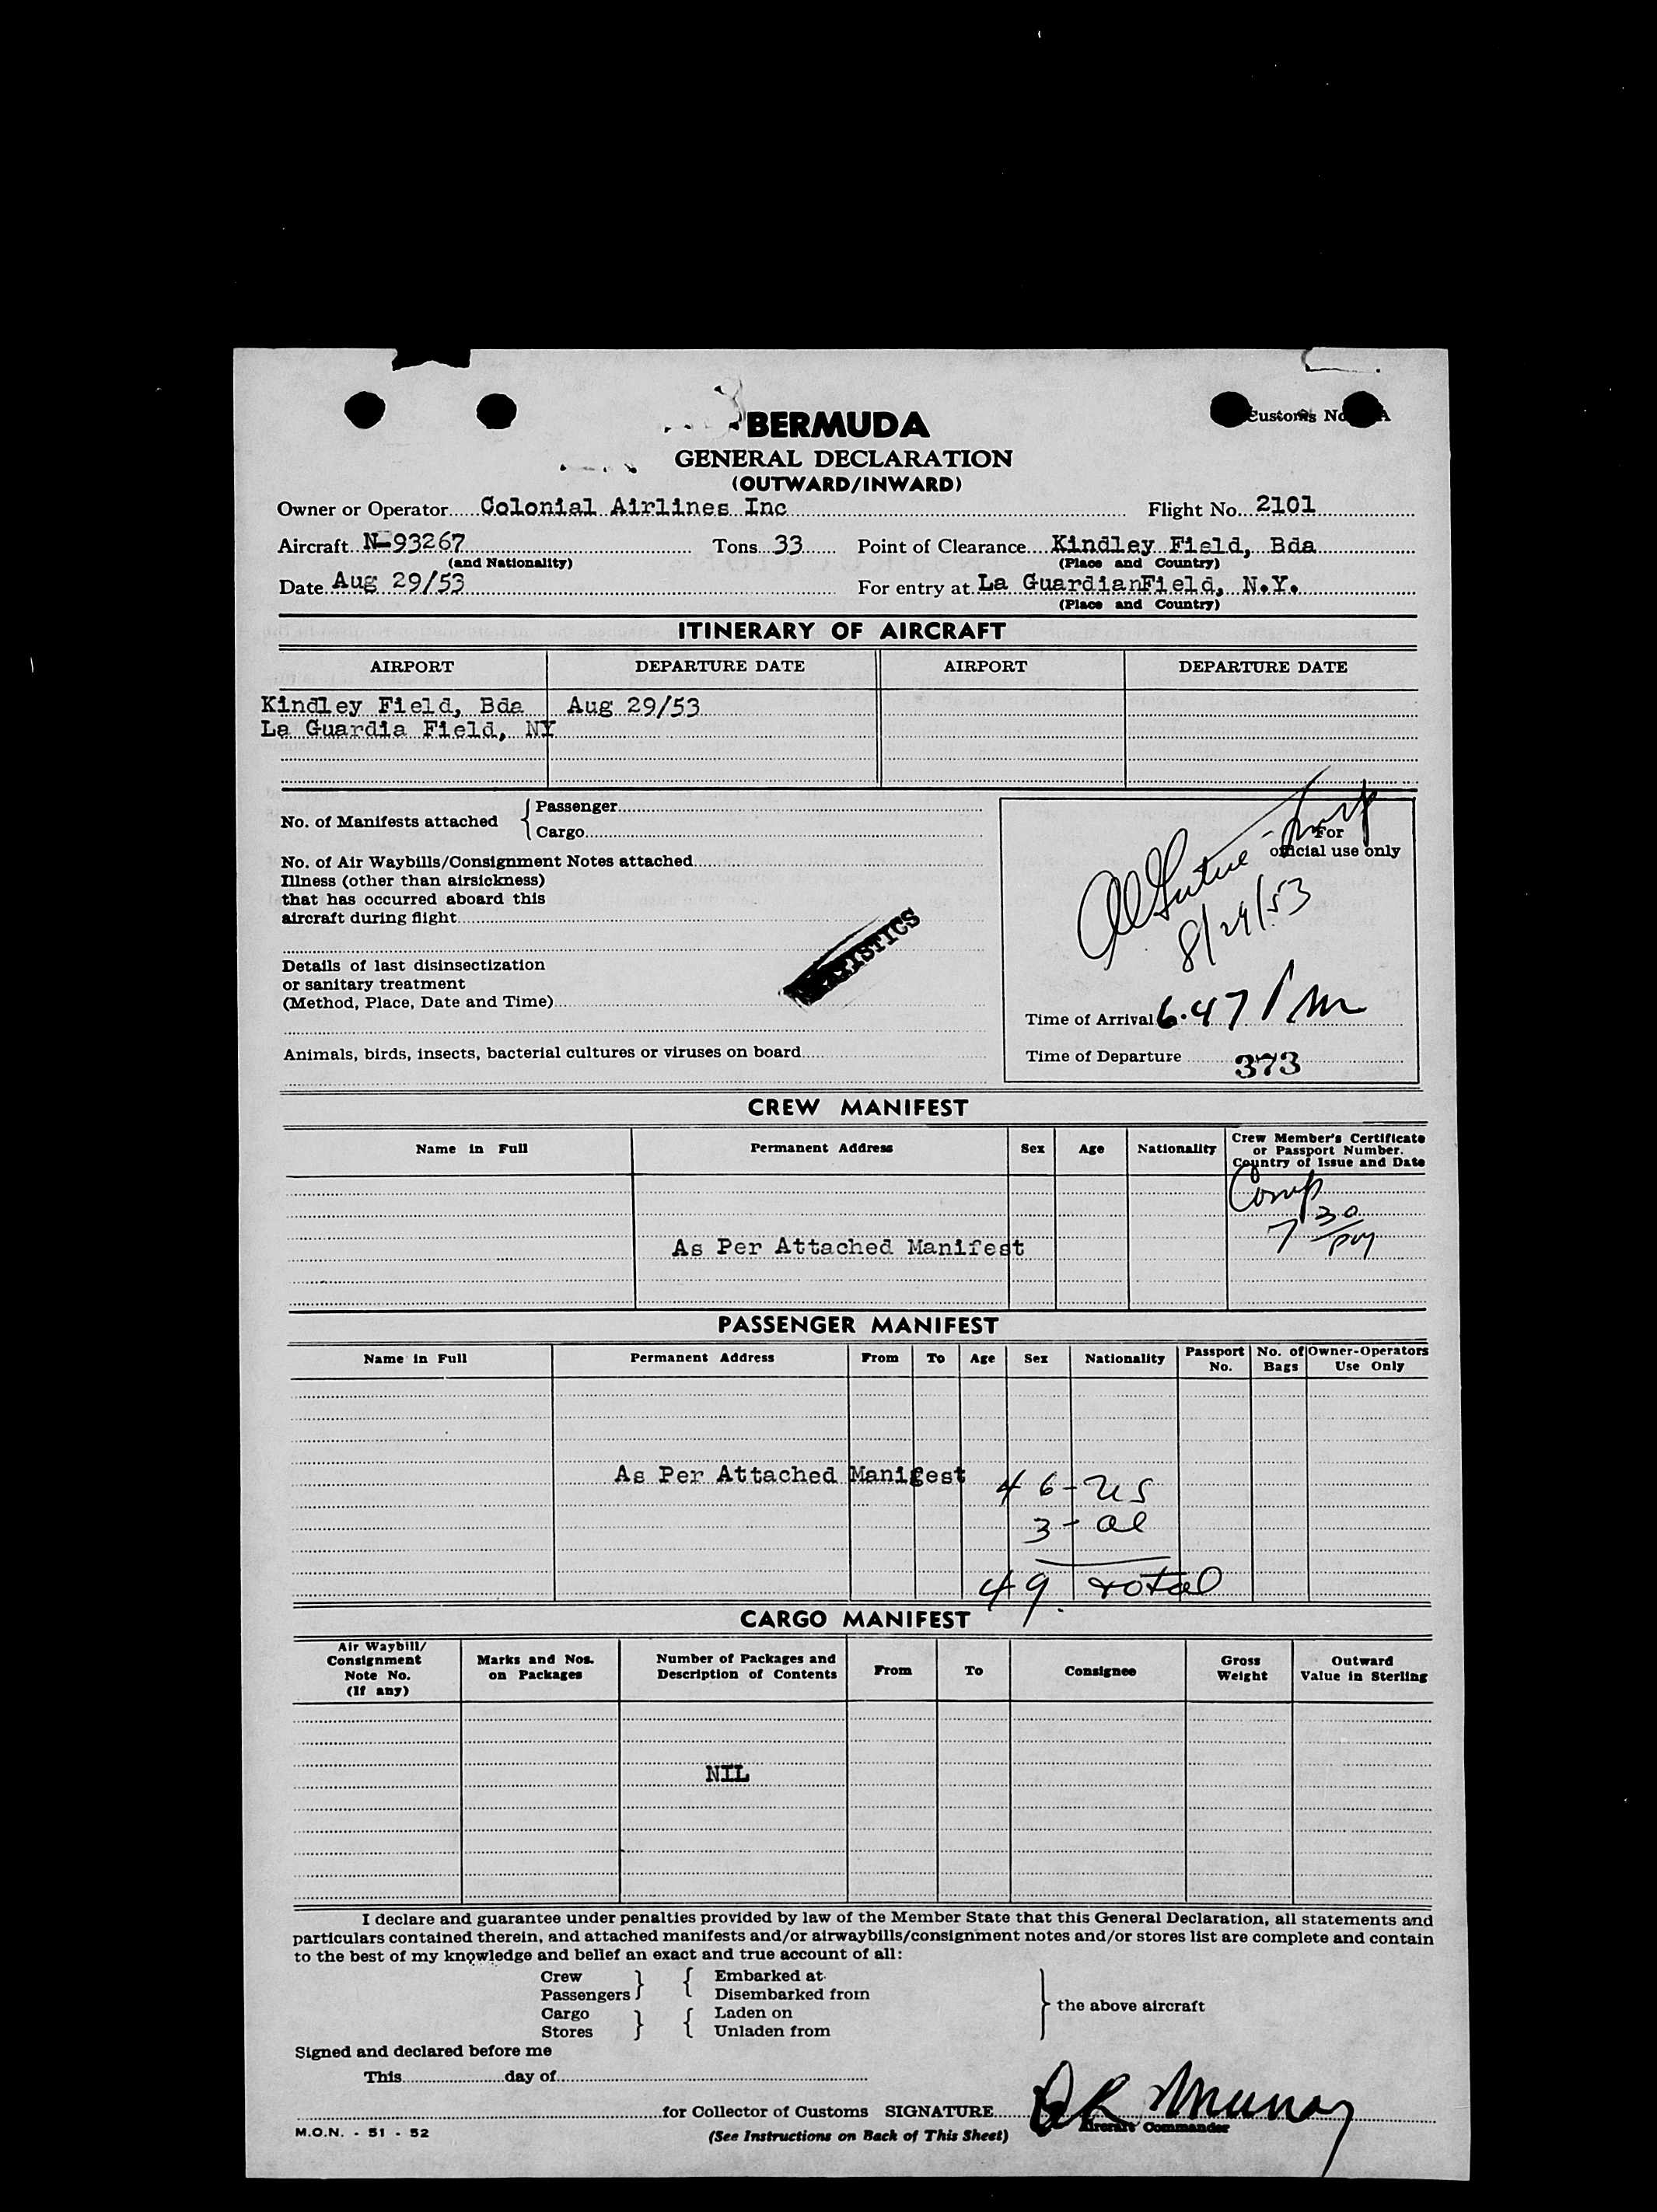 Customs No. A
BERMUDA
GENERAL DECLARATION
(OUTWARD/INWARD)
Owner or Operator Colonial Airlines Inc Flight No. 2101
Aircraft N-93267 Tons 33 Point of Clearance Kindley Field, Bda
(and Nationality) (Place and Country)
Date Aug 29/53 For entry at La GuardianField, N.Y.
(Place and Country)
ITINERARY OF AIRCRAFT
AIRPORT DEPARTURE DATE AIRPORT DEPARTURE DATE
Kindley Field, Bda Aug 29/53
La Guardia Field, NY
No. of Manifests attached { Passenger
Cargo
For
official use only
No. of Air Waybills/Consignment Notes attached
Illness (other than airsickness)
that has occurred aboard this
aircraft during flight
8/29/53
Details of last disinsectization
or sanitary treatment
(Method, Place, Date and Time)
Time of Arrival 6.47 PM
Animals, birds, insects, bacterial cultures or viruses on board
Time of Departure 373
CREW MANIFEST
Name in Full Permanent Address Sex Age Nationality Crew Member's Certificate
or Passport Number.
Country of Issue and Date
Comp
7 30
pm
As Per Attached Manifest
PASSENGER MANIFEST
Name in Full Permanent Address From To Age Sex Nationality Passport No. No. of Bags Owner-Operators Use Only
As Per Attached Manifest
46 - US
3 - al
49 total
CARGO MANIFEST
Air Waybill/
Consignment
Note No.
(If any)
Marks and Nos.
on Packages
Number of Packages and
Description of Contents
From To Consignee
Gross
Weight
Outward
Value in Sterling
NIL
I declare and guarantee under penalties provided by law of the Member State that this General Declaration, all statements and
particulars contained therein, and attached manifests and/or airwaybills/consignment notes and/or stores list are complete and contain
to the best of my knowledge and belief an exact and true account of all:
Crew } { Embarked at
Passengers Disembarked from
Cargo } { Laden on
Stores Unladen from
} the above aircraft
Signed and declared before me
This day of
for Collector of Customs SIGNATURE
Aircraft Commander
M.O.N. - 51 - 52
(See Instructions on Back of This Sheet)